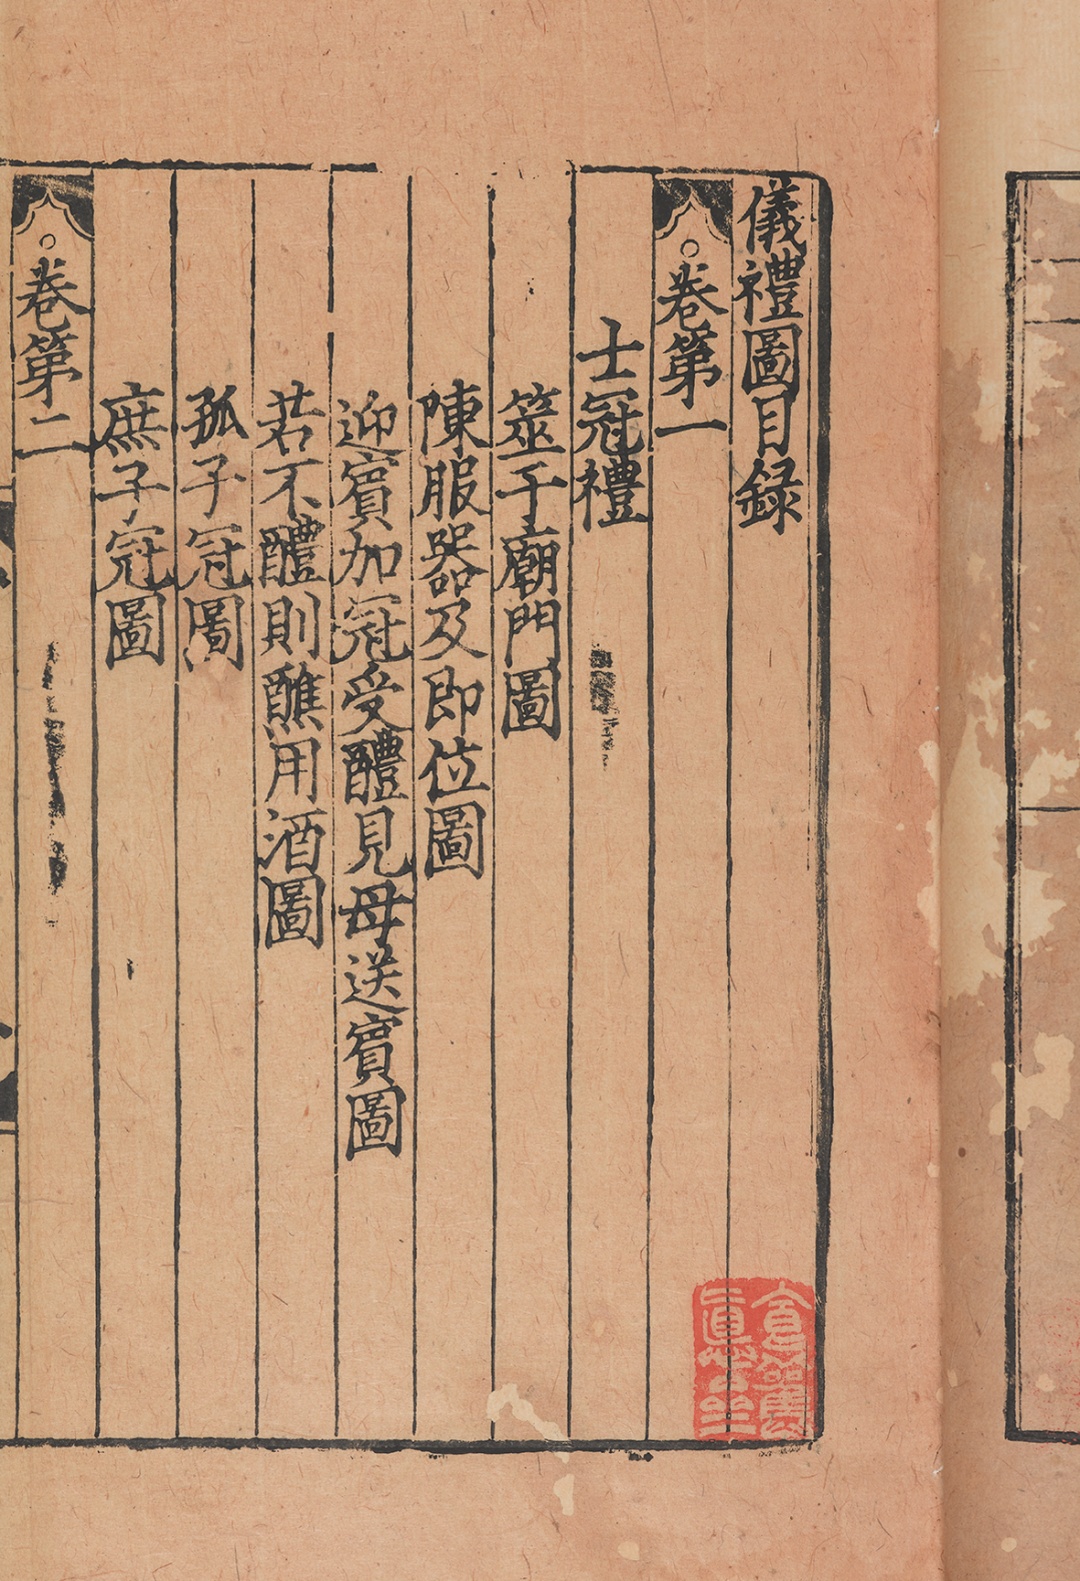 儀禮圖目録
卷第一
士冠禮
筮于廟門圖
陳服器及即位圖
迎賓加冠受醴見母送賓圖
若不醴則醮用酒圖
孤子冠圖
庶子冠圖
卷第二